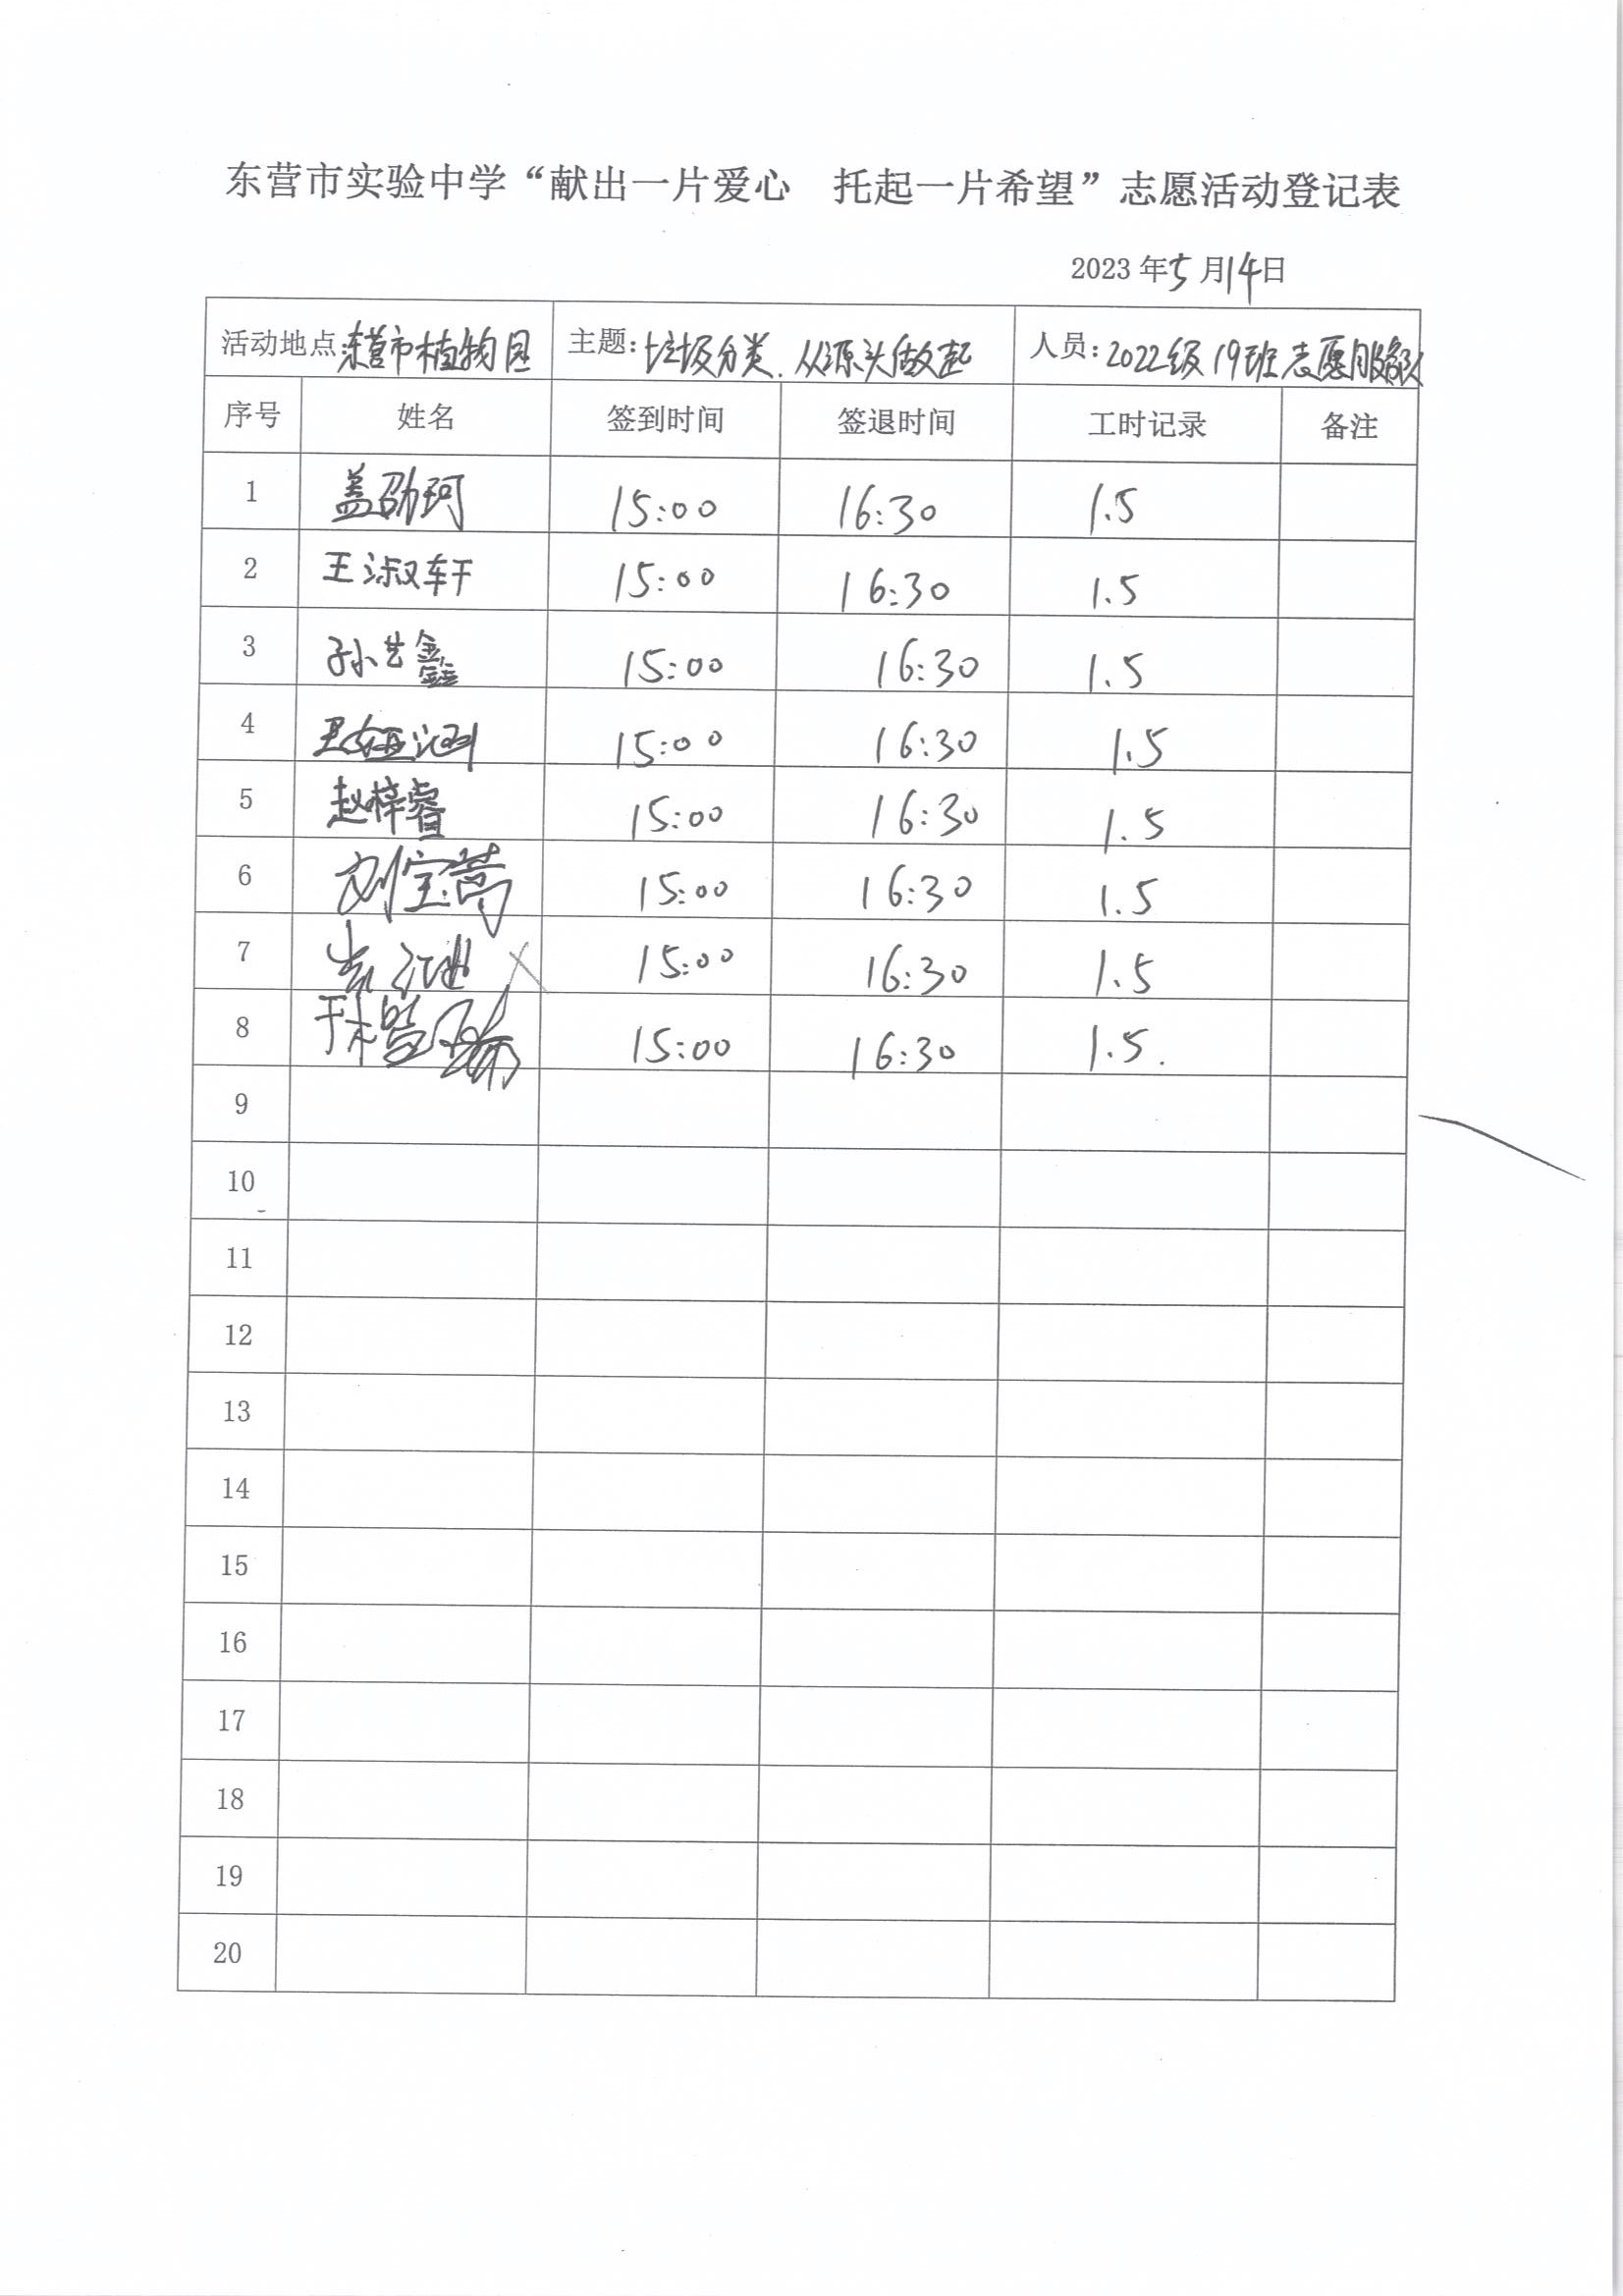 东营市实验中学“献出一片爱心 托起一片希望”志愿活动登记表
2023年5月14日
活动地点:东营市植物园 主题:垃圾分类.从源头做起 人员:2022级19班志愿服务队
序号 姓名 签到时间 签退时间 工时记录 备注
1 盖劭珂 15:00 16:30 1.5
2 王淑轩 15:00 16:30 1.5
3 孙艺鑫 15:00 16:30 1.5
4 15:00 16:30 1.5
5 赵梓睿 15:00 16:30 1.5
6 刘宝嵩 15:00 16:30 1.5
7 15:00 16:30 1.5
8 15:00 16:30 1.5.
9
10
11
12
13
14
15
16
17
18
19
20